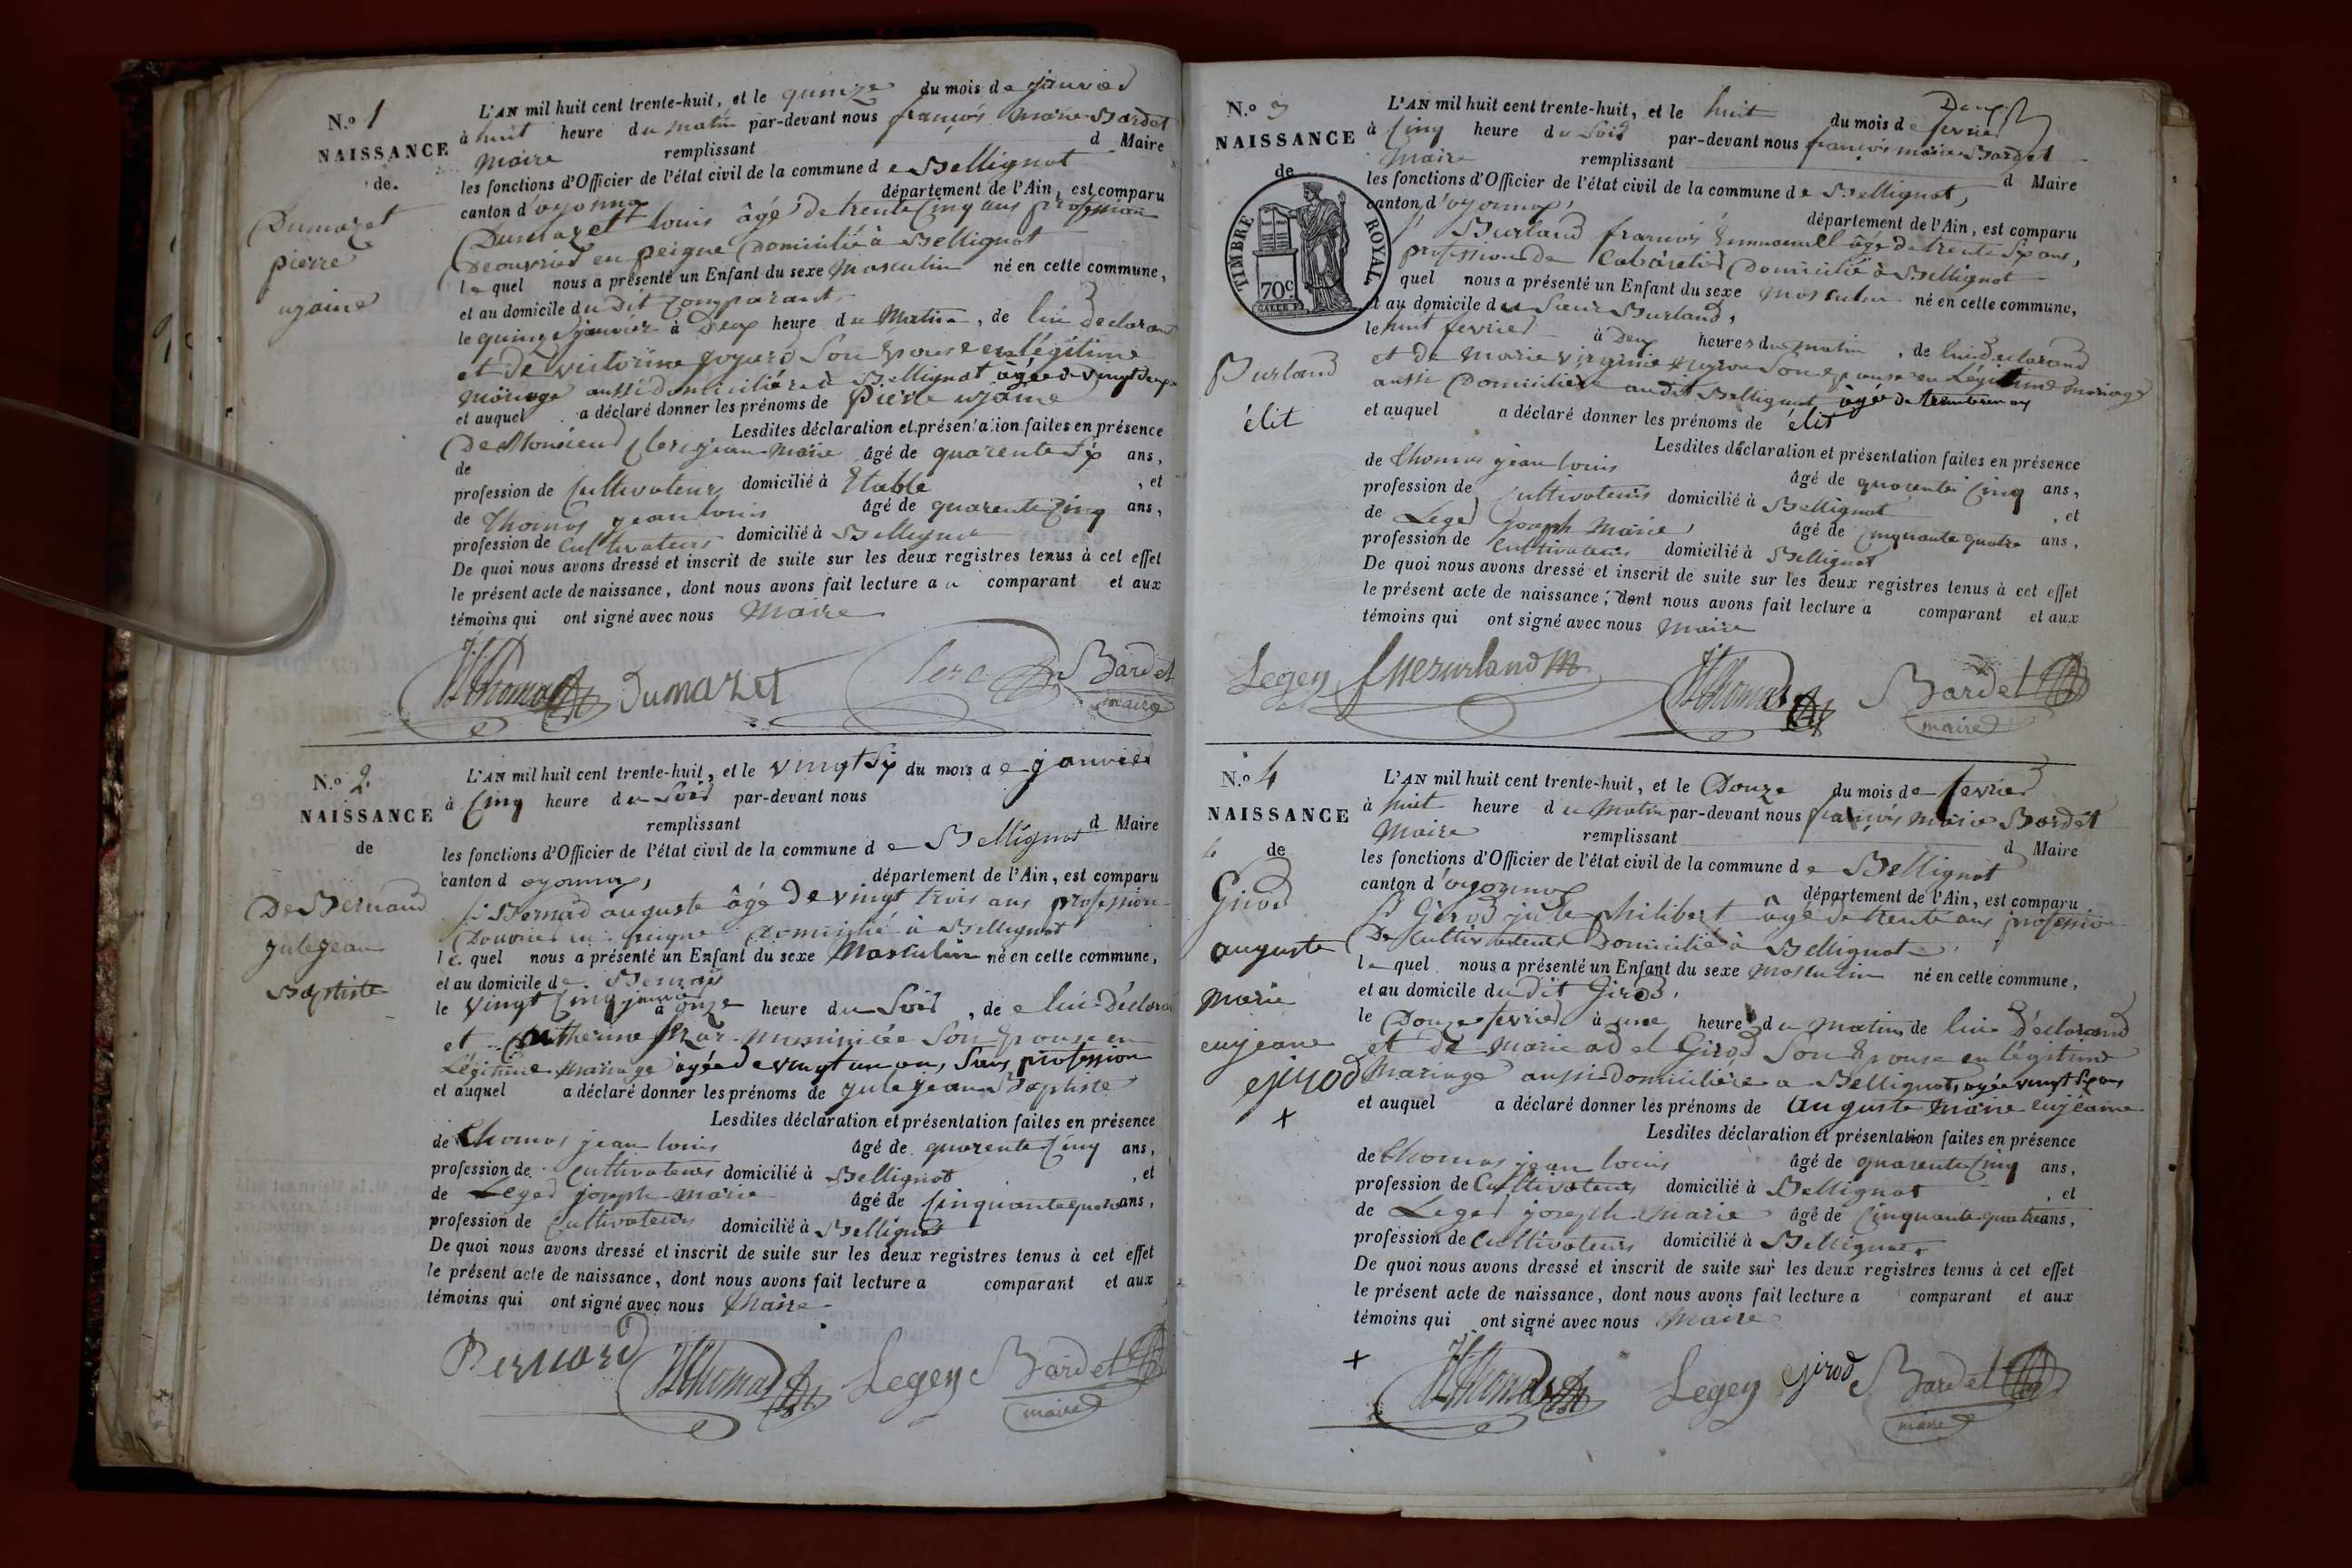 N.º 1
NAISSANCE
de
Dumazet
pierre
ujaine
L'AN mil huit cent trente-huit, et le quinze du mois de janvier
à huit heure du matin par-devant nous françois Marie Bardet
Maire remplissant d Maire
les fonctions d'Officier de l'état civil de la commune de Bellignat
canton d'oyonnax département de l'Ain, est comparu
Dumazet louis âgé de trente Cinq ans profession
Deouvrier en peigne Domicilié à Bellignat
lequel nous a présenté un Enfant du sexe Masculin né en cette commune,
et au domicile du Dit Comparant
le quinze janvier à Deux heure du Matin, de lui Declarand
et de victorine goyard Son Epouse en légitime
mariage aussi domicilière à Bellignat agée de vingt deux
et auquel a déclaré donner les prénoms de Pierre ujaine
Lesdites déclaration et présentation faites en présence
De Monsieur Clerc jean Marie âgé de quarente Six ans,
de
profession de Cultivateur domicilié à Etable, et
de Thomas jean louis âgé de quarente Cinq ans,
profession de Cultivateurs domicilié à Bellignat
De quoi nous avons dressé et inscrit de suite sur les deux registres tenus à cet effet
le présent acte de naissance, dont nous avons fait lecture au comparant et aux
témoins qui ont signé avec nous Maire
JLThomas Dumazet Clerc Bardet
maire
N.º 2
NAISSANCE
de
De Bernard
jule jean
Baptiste
L'AN mil huit cent trente-huit, et le vingt Six du mois de janvier
à Cinq heure du Soir par-devant nous
remplissant d Maire
les fonctions d'Officier de l'état civil de la commune de Bellignat
canton d oyonnax, département de l'Ain, est comparu
Sr Bernard auguste âgé de vingt trois ans profession
Douvrier en peigne Domicilié à Bellignat
lequel nous a présenté un Enfant du sexe Masculin né en cette commune,
et au domicile de Bernard
le vingt Cinq janvier à onze heure du Soir, de lui Déclarand
et Catherine Son Epouse en
Légitime mariage agée de vingt un an, Sans profession
et auquel a déclaré donner les prénoms de jule jean Baptiste
Lesdites déclaration et présentation faites en présence
de Thomas jean louis âgé de quarente Cinq ans,
profession de Cultivateurs domicilié à Bellignat, et
de Leger joseph marie âgé de Cinquante quatre ans,
profession de Cultivateurs domicilié à Bellignat
De quoi nous avons dressé et inscrit de suite sur les deux registres tenus à cet effet
le présent acte de naissance, dont nous avons fait lecture a comparant et aux
témoins qui ont signé avec nous Maire
Bernard JLThomas Leger Bardet
maire
Deux
N.º 3
NAISSANCE
de
TIMBRE ROYAL
70c
Burland
élit
L'AN mil huit cent trente-huit, et le huit du mois de fevrier
à Cinq heure du Soir par-devant nous françois marie Bardet
Maire remplissant d Maire
les fonctions d'Officier de l'état civil de la commune de Bellignat,
canton d'oyonnax, département de l'Ain, est comparu
Sr Burland francois Emmanuel âgé de trente Six ans,
profession de Cabaretier Domicilié à Bellignat
quel nous a présenté un Enfant du sexe Masculin né en cette commune,
et au domicile du Sieur Burland,
le huit fevrier à Deux heures du matin, de lui Declarand
et de Marie virginie Son epouse en Légitime mariage
aussi Domicilière audit Bellignat agée de
et auquel a déclaré donner les prénoms de élit
Lesdites déclaration et présentation faites en présence
de Thomas jean louis âgé de quarente Cinq ans,
profession de Cultivateurs domicilié à Bellignat, et
de Leger joseph Marie âgé de Cinquante quatre ans,
profession de Cultivateurs domicilié à Bellignat
De quoi nous avons dressé et inscrit de suite sur les deux registres tenus à cet effet
le présent acte de naissance, dont nous avons fait lecture a comparant et aux
témoins qui ont signé avec nous Maire
Leger JLThomas Bardet
maire
N.º 4
NAISSANCE
de
Girod
auguste
marie
eujeane
girod
L'AN mil huit cent trente-huit, et le Douze du mois de fevrier
à huit heure du Matin par-devant nous françois Marie Bardet
Maire remplissant d Maire
les fonctions d'Officier de l'état civil de la commune de Bellignat
canton d'oyonnax département de l'Ain, est comparu
Sr Girod jule philibert âgé de trente ans profession
De Cultivateur Domicilié à Bellignat
lequel nous a présenté un Enfant du sexe Masculin né en cette commune,
et au domicile du Dit Girod,
le Douze fevrier à une heure du Matin de lui Déclarand
et de Marie adel Girod Son Epouse en légitime
Mariage aussi domicilière a Bellignat, agée vingt Six ans
et auquel a déclaré donner les prénoms de auguste marie eujeane
Lesdites déclaration et présentation faites en présence
de Thomas jean louis âgé de quarente Cinq ans,
profession de Cultivateurs domicilié à Bellignat, et
de Leger joseph Marie âgé de Cinquante quatre ans,
profession de Cultivateurs domicilié à Bellignat
De quoi nous avons dressé et inscrit de suite sur les deux registres tenus à cet effet
le présent acte de naissance, dont nous avons fait lecture a comparant et aux
témoins qui ont signé avec nous Maire
JLThomas Leger girod Bardet
maire